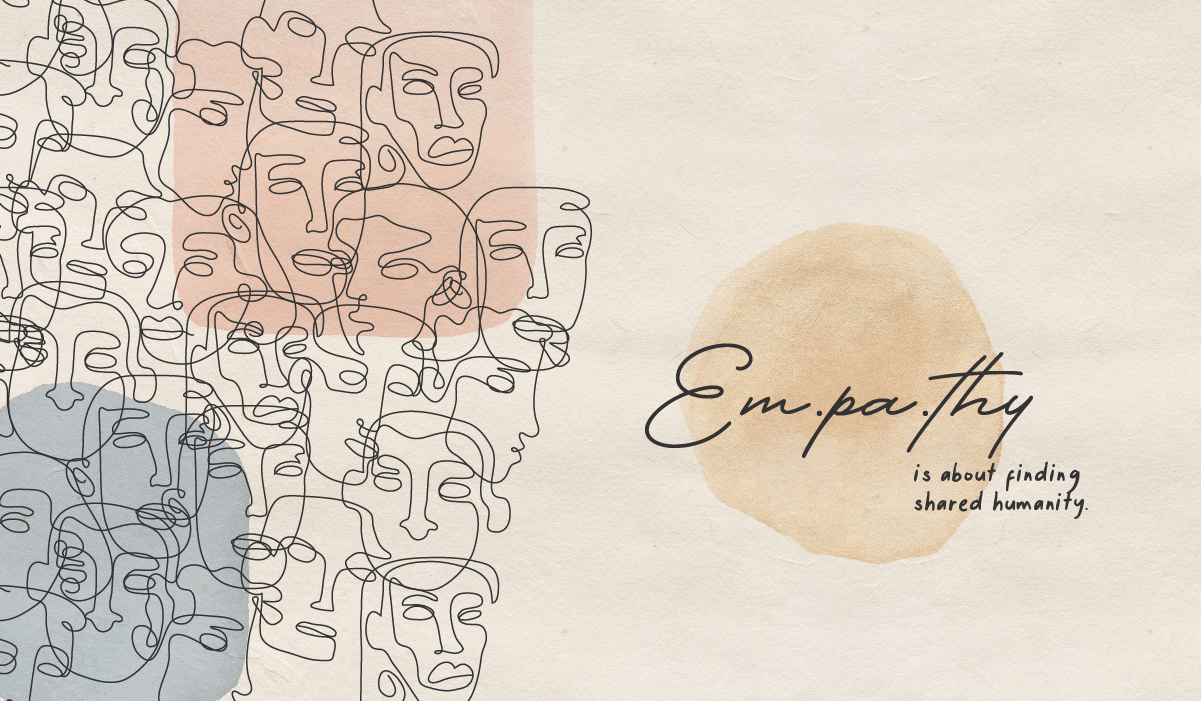 Em.pa.thy
is about finding
shared humanity.